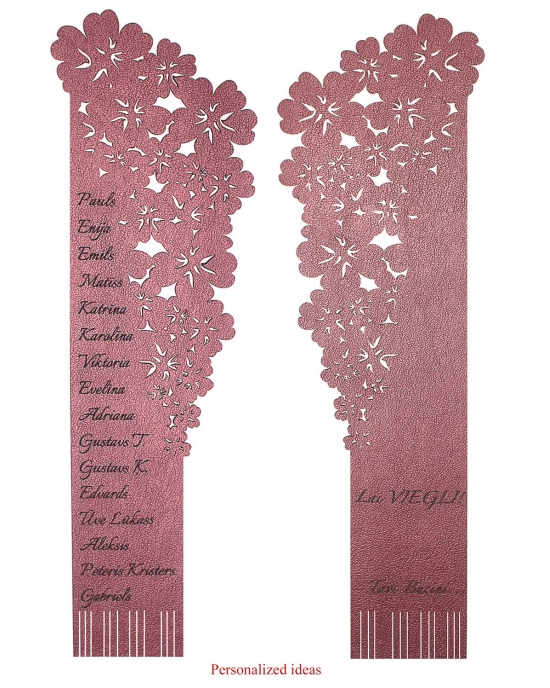 Pauls
Enija
Emils
Matiss
Katrina
Karolina
Viktoria
Evelina
Adriana
Gustavs T.
Gustavs K.
Edvards
Uve Lūkass
Aleksis
Pēteris Kristers
Gabriels
Lai VIEGLI!
Tavi Bacini...
Personalized ideas